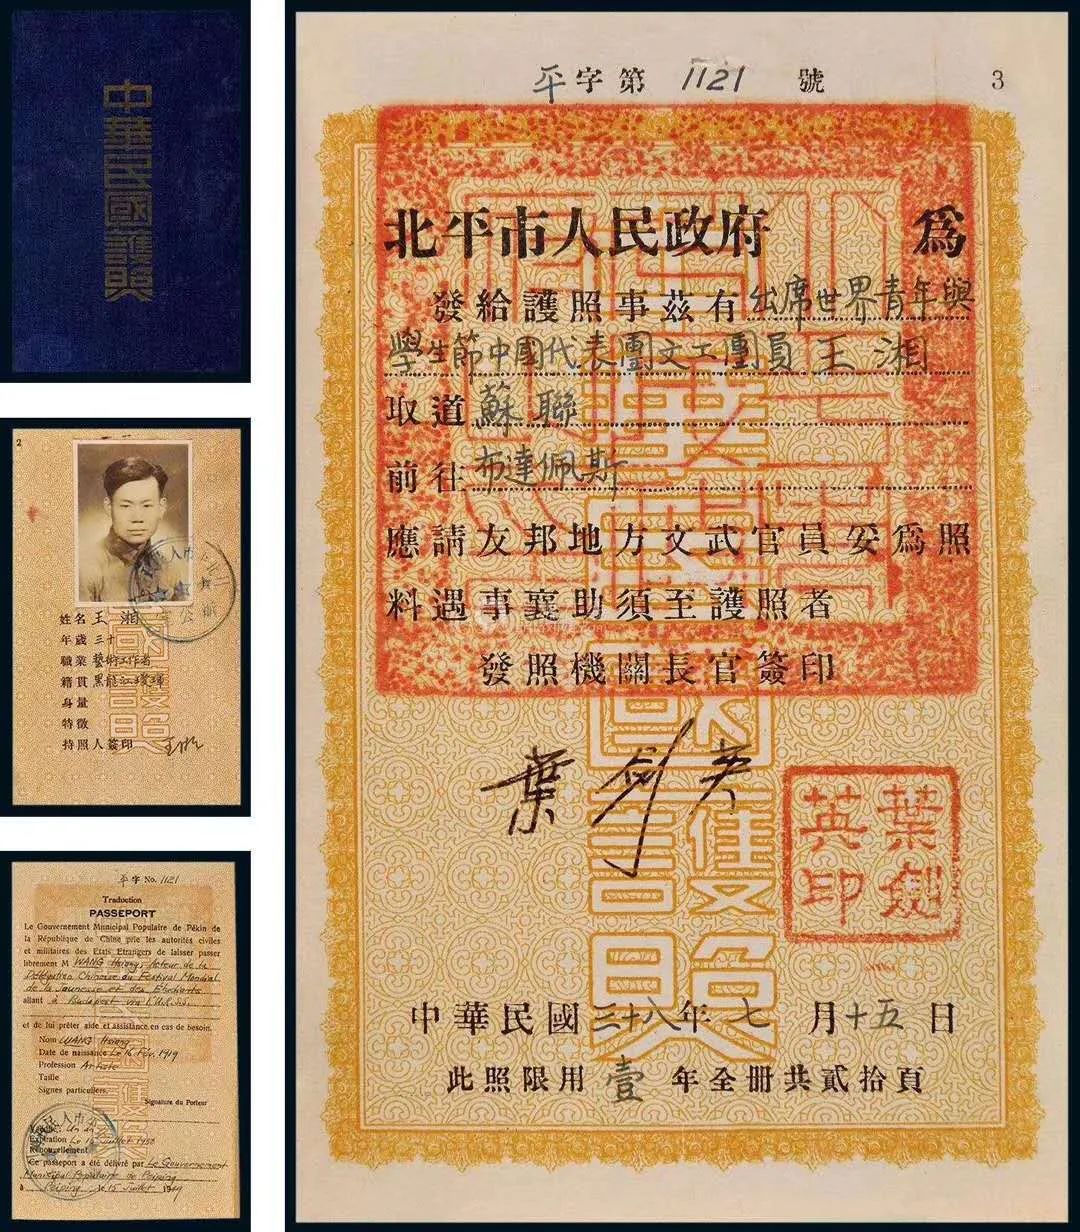 中華民國護照
2
姓名 王湘
年歲 三十
職業 藝術工作者
籍貫 黑龍江璦琿
身量
特徵
持照人簽印
平字 No. 1121
Traduction
PASSEPORT
Le Gouvernement Municipal Populaire de Pékin de
la République de Chine prie les autorités civiles
et militaires des Etats Etrangers de laisser passer
librement M WANG Hsiang, Acteur de la
Délégation Chinoise au Festival Mondial
de la Jeunesse et des Étudiants
allant à Budapest via l'U.R.S.S.
et de lui prêter aide et assistance en cas de besoin.
Nom WANG Hsiang
Date de naissance Le 16 Fév. 1919
Profession Artiste
Taille
Signes particuliers.
Signature du Porteur
Valable: Un an
Expiration Le 15 Juillet 1950
Renouvellement
Ce passeport a été délivré par Le Gouvernement
Municipal Populaire de Peiping
à Peiping le 15 Juillet 1949
平字第 1121 號
3
北平市人民政府 爲
發給護照事茲有 出席世界青年與
學生節中國代表團文工團員王湘
取道 蘇聯
前往 布達佩斯
應請友邦地方文武官員妥爲照
料遇事襄助須至護照者
發照機關長官簽印
葉劍英
葉劍英印
中華民國三十八年七月十五日
此照限用壹年全册共貳拾頁